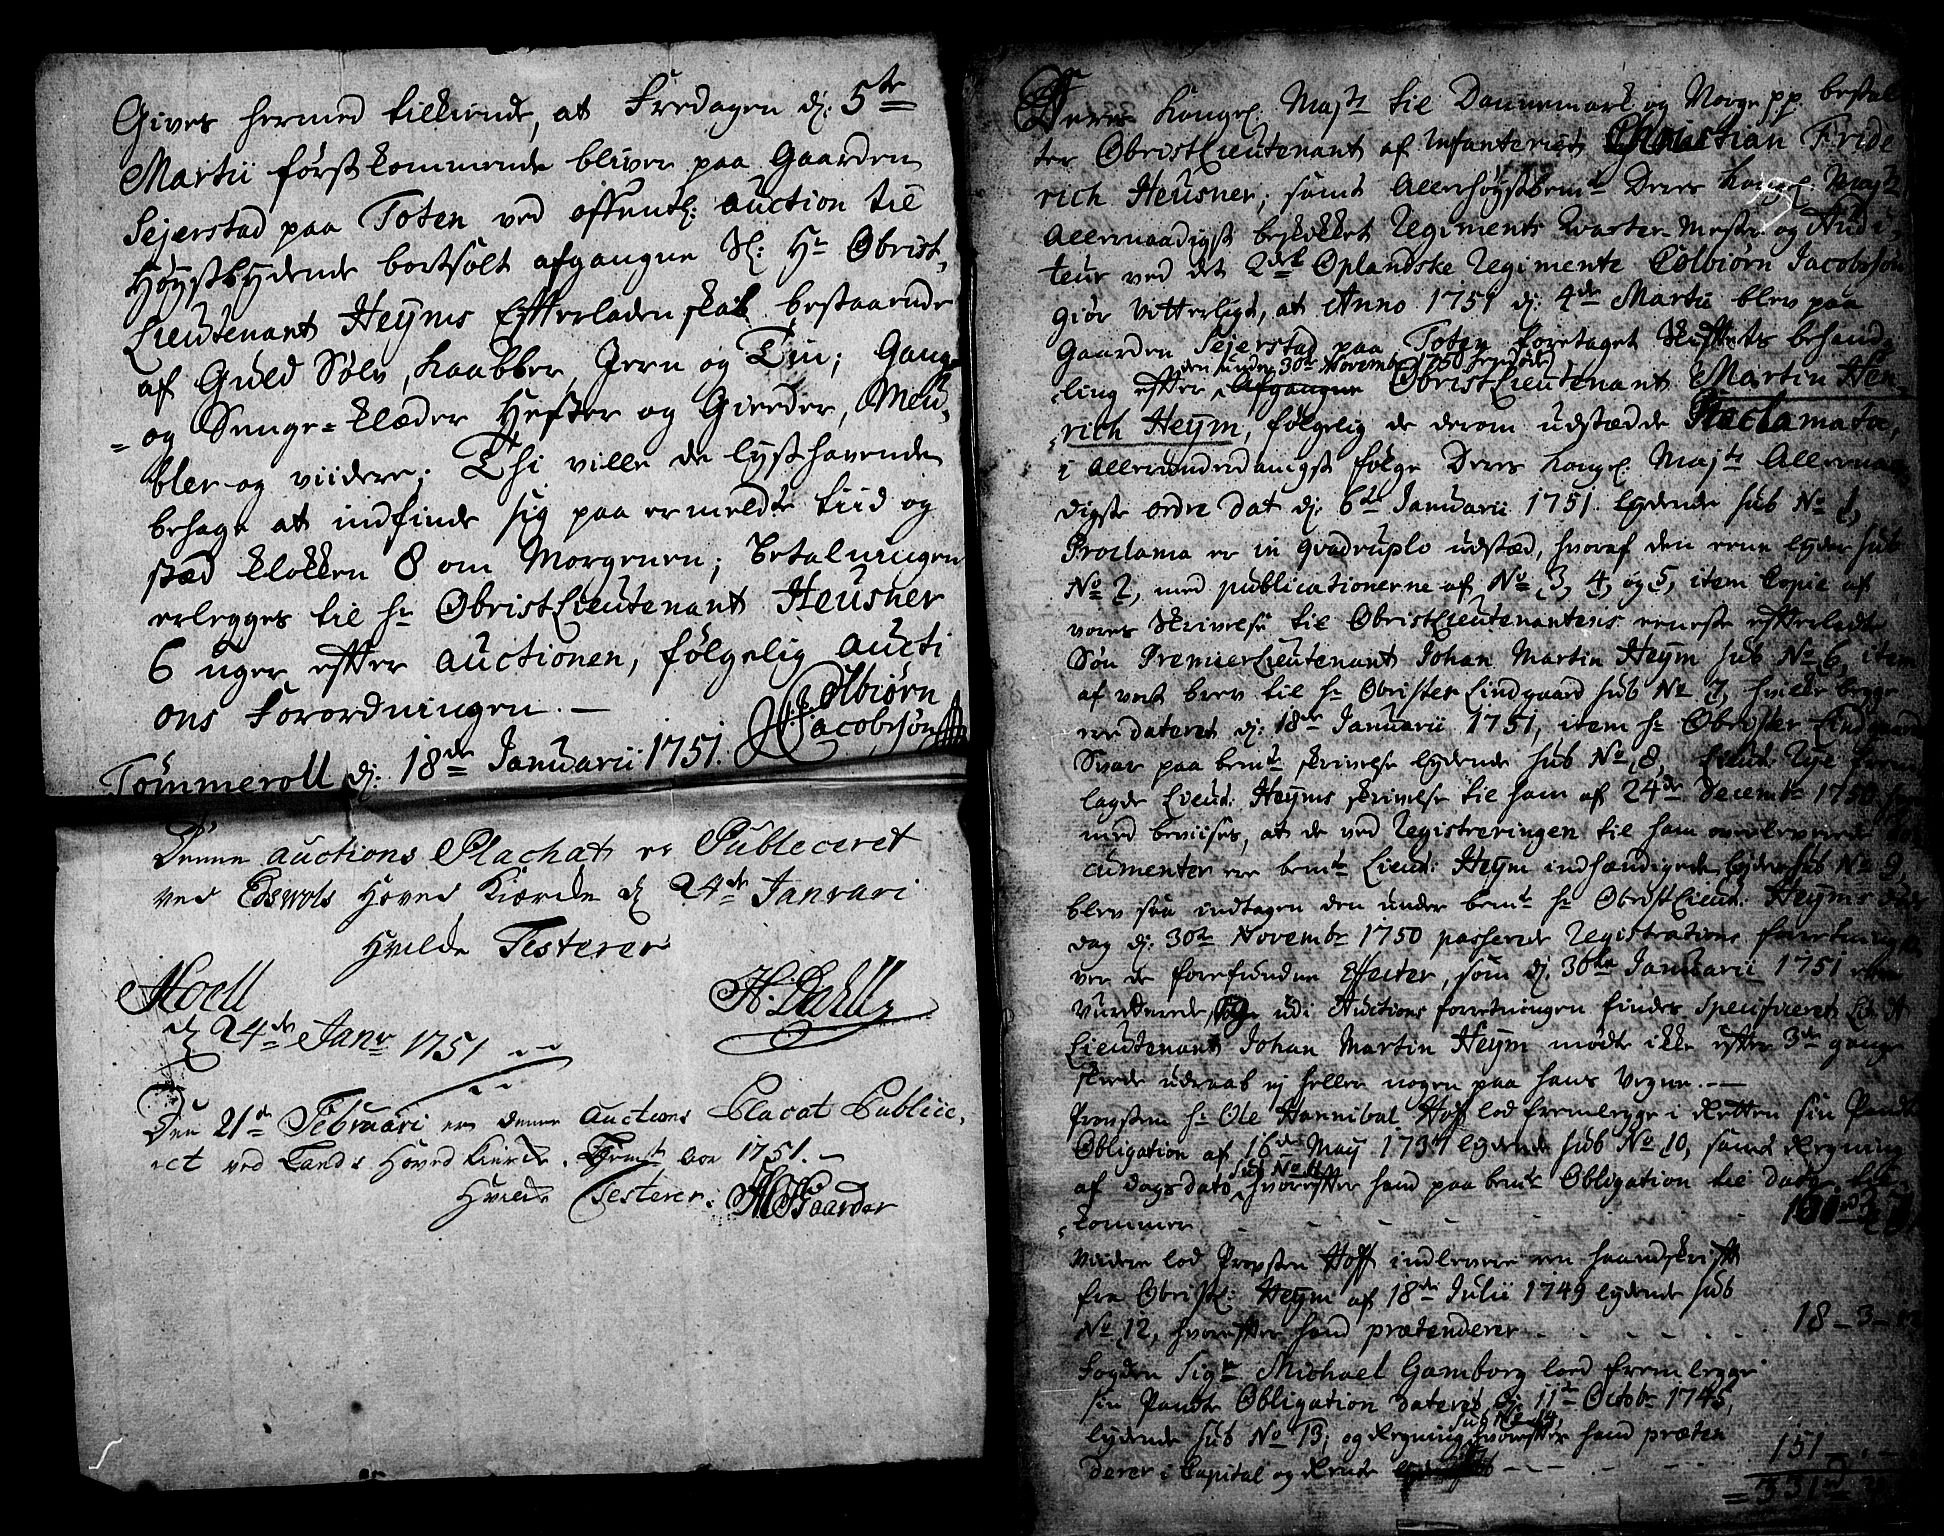 Gives hermed tilkiende, at Fredagen d: 5te
Martii førstkommende bliver paa Gaarden
Sejerstad paa Toten ved offentl: auction til
Høystbydende bortsolt afgangne Sl: Hr Obrist-
Lieutenant Heÿms Efterladenskab bestaaende
af Guld Sølv, Kaabber Jern og Tin; Gang-
og Senge-klæder Hester og Creder, Meu-
bler og viidere; Thi ville de lysthavende
behage at indfinde sig paa ermeldte tiid og
stæd klokken 8 om Morgenen; Betalningen
erlegges til hr ObristLieutenant Heusner
6 uger efter auctionen, følgelig aucti
ons Forordningen. —
Colbiørn
Jacobssøn
Tømmeroll d: 18de Januarii 1751.
Denne auctions Plachat er Publeceret
ved Edswols Hoved Kircke d 24de Januari
Hvilcke Testerer
Moell H. Dahll
d 24de Janr 1751
Den 21de Februari er denne Auctions Placat Publice-
ret ved Lands Hoved Kircke. Aar 1751. —
Hvilcke Testerer.
Deres Kongel. Majts til Dannemark og Norge pp. bestal
ter ObristLieutenant af Infanteriet Christian Fride
rich Heusner, samt Allerhøystbemte Deres Kongl Majts
Allernaadigst beskikket Regiments Qvarter-Mester og Audi-
teur ved det 2det Oplandske Regimente Colbiørn Jacobssøn
giør Vitterligt, at Anno 1751 d: 4de Martii blev paa
Gaarden Sejerstad paa Toten foretaget Skiftets behand-
den under 30te Novembr 1750
ling efter afgangne ObristLieutenant Martin Hen-
rich Heÿm, følgelig de derom udstædde Proclamata,
i allerunderdanigst følge Deres Kongel. Majts Allernaa-
digste ordre dat d: 6te Januarii 1751. lydende sub No 1,
Proclama er in qvadruplo udstæd, hvoraf den eene lyder sub
No 2, med publicationerne af No 3, 4, og 5, item Copie af
vores Skrivelse til ObristLieutenantens eeneste efterladte
Søn PremierLieutenant Johan Martin Heÿm sub No 6, item
af vort brev til hr Obrister Lindgaard sub No 7, hvilke begge
ere dateret d: 18de Januarii 1751, item hr Obrister Lindgaards
Svar paa bemte skrivelse lydende sub No 8, Lieut:
lagde Lieut: Heÿms skrivelse til ham af 24de Decembr 1750
med beviises, at de ved Registreringen til ham overleverede
cumenter ere bemte Lieut: Heÿm indhændigede lydende sub No 9,
blev saa indtagen den under bemte hr ObristLieut: Heÿms døds
dag d: 30te Novembr 1750 passerede Registrations forretning
ver de forefundne Effecter, som d: 30te Januarii 1751
vurderede udi Auctions forretningen findes specificeret
Lieutenant Johan Martin Heÿm mødte ikke efter 3de gange
skeede udraab ej heller nogen paa hans Vegne. —
Provsten hr Ole Hannibal Hoff lod fremlegge i Retten sin Pandt
Obligation af 16de Maij 1737 lydende sub No 10, samt Regning
sub No 11
af dags dato hvorefter hand paa bemte Obligation til dato til-
kommer
Videre lod Provsten Hoff indlevere en haandskrift
fra Obristl: Heÿm af 18de Julii 1749 lydende sub
No 12, hvorefter hand prætenderer 18 - 3 -
Fogden Sigr Michael Gamborg lod fremlegge
sin Pandte Obligation dateret d: 11te Octobr 1745,
sub No 14,
lydende sub No 13, og Regning hvorefter hand præten
derer i Capital og Rente 151
331